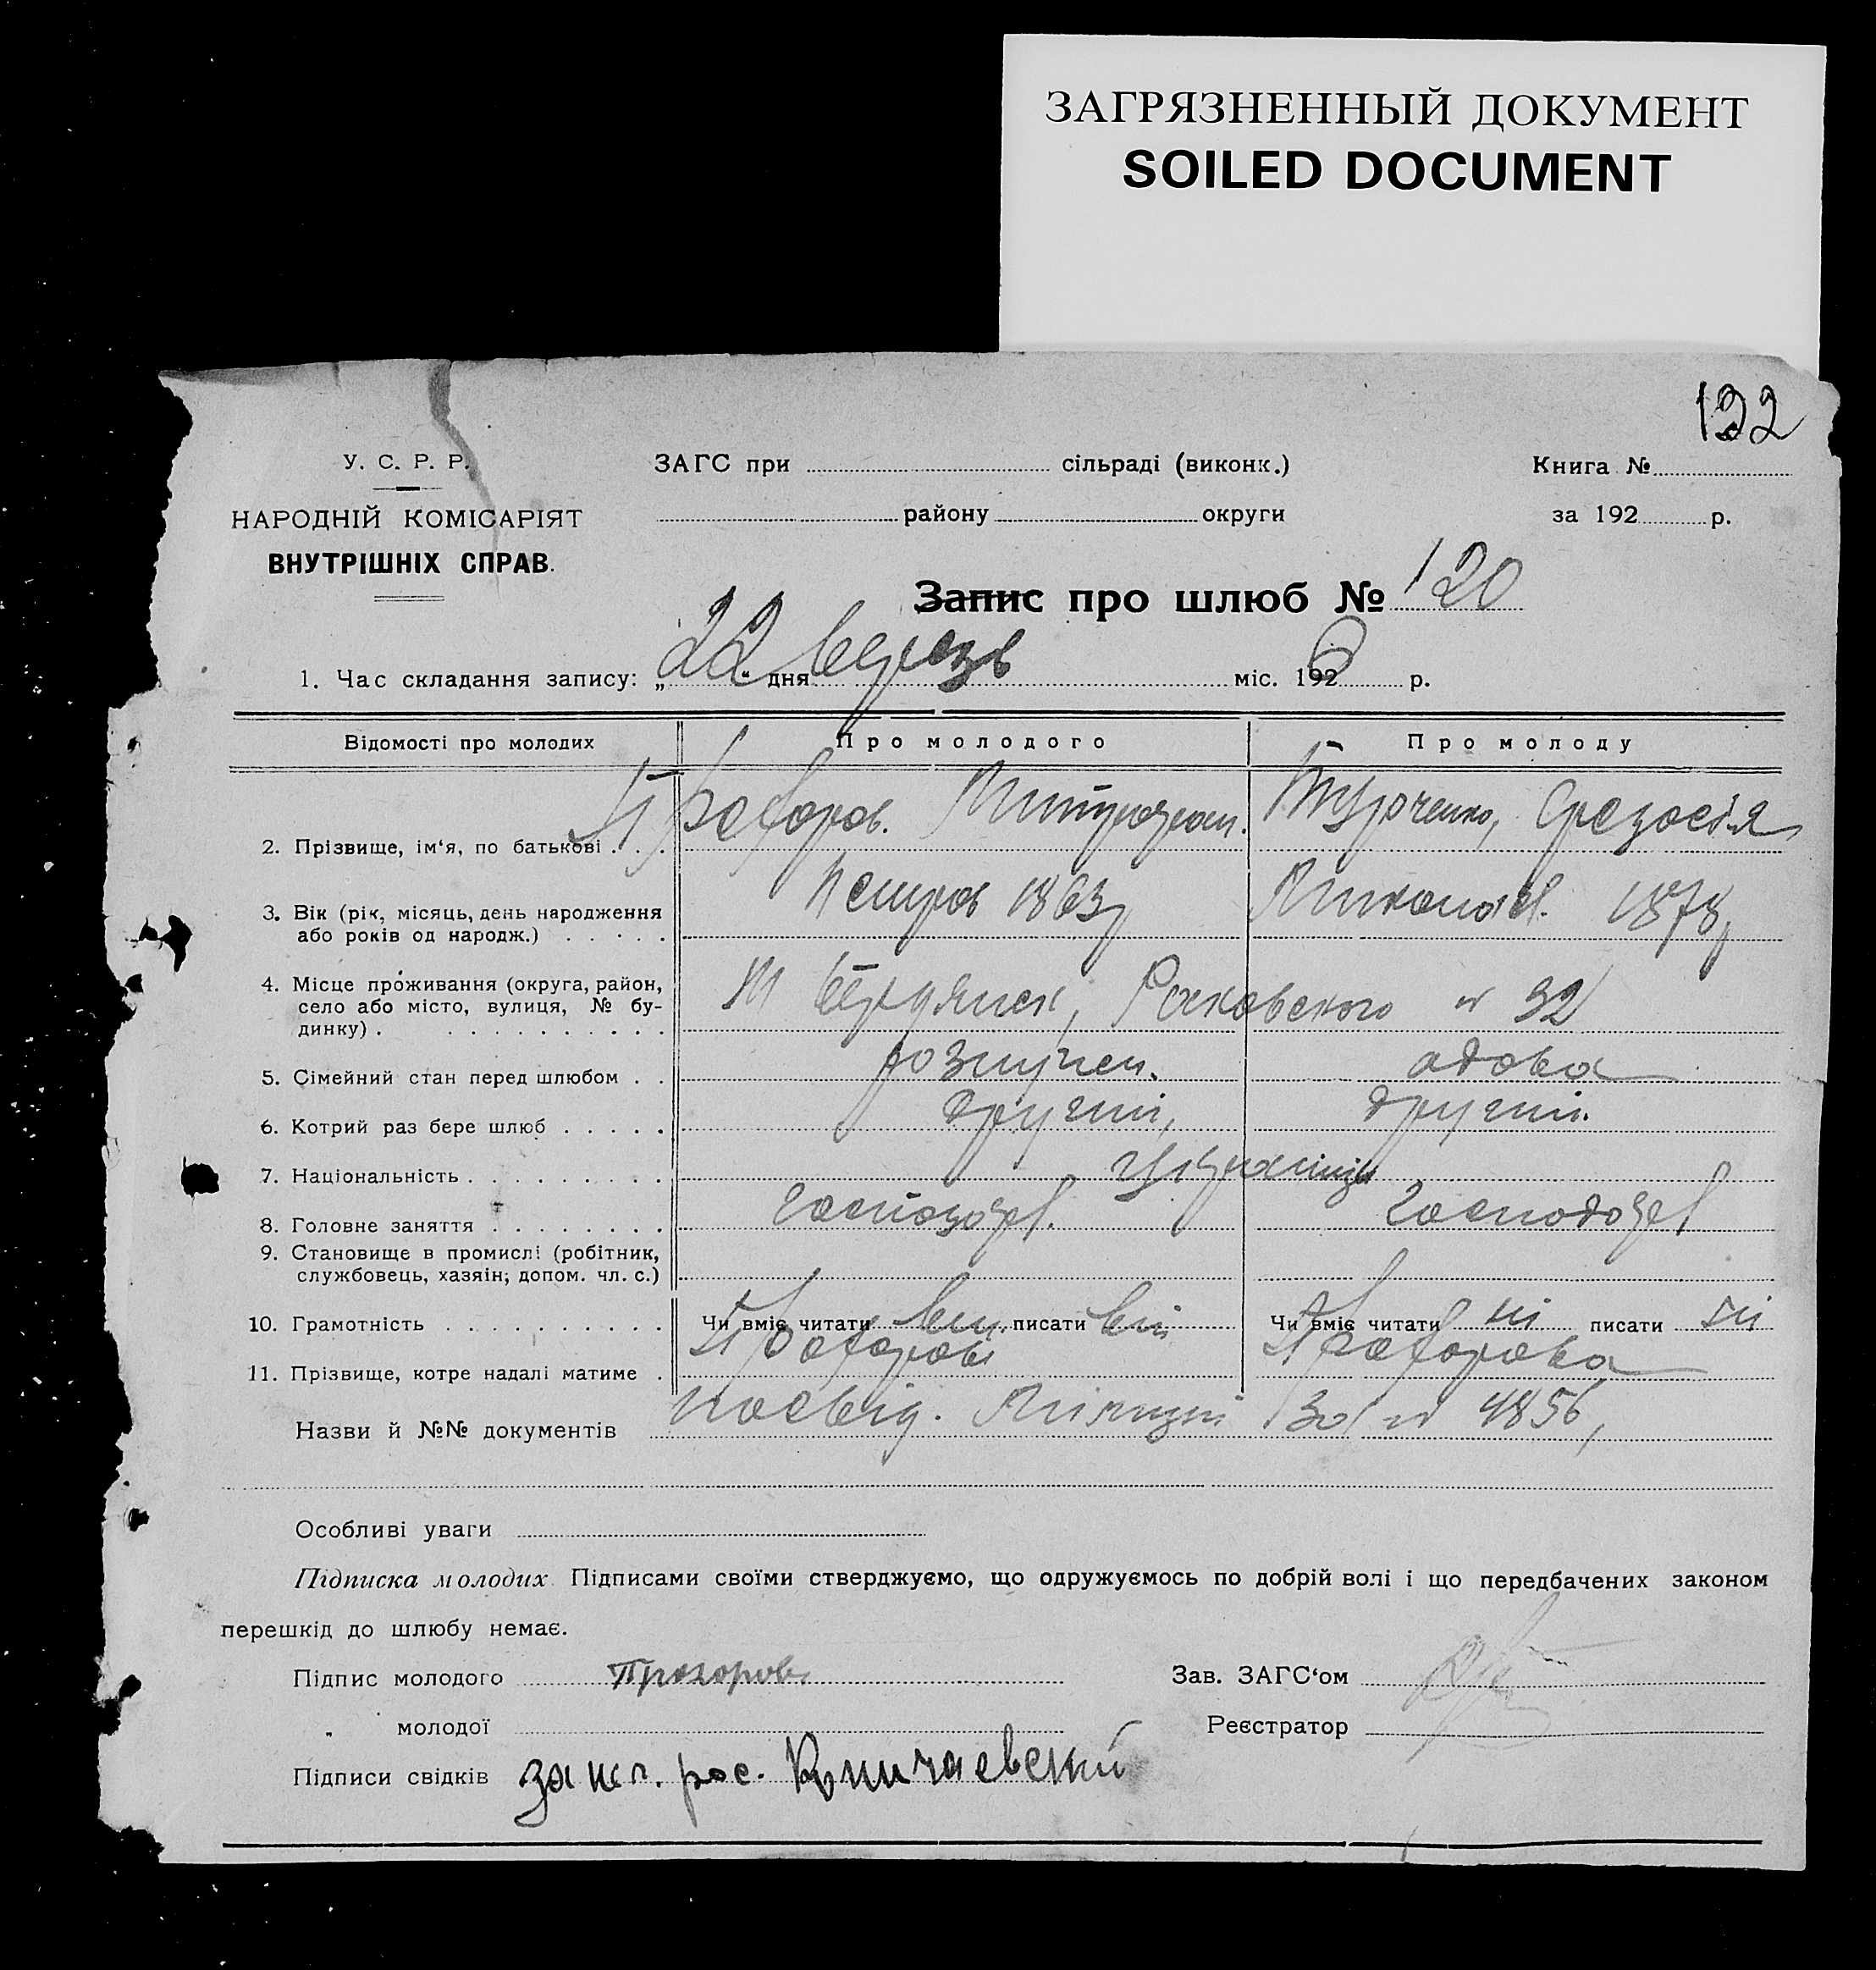 ЗАГРЯЗНЕННЫЙ ДОКУМЕНТ
SOILED DOCUMENT
122
У. С. Р. Р.
НАРОДНІЙ КОМІСАРІЯТ
ВНУТРІШНІХ СПРАВ.
ЗАГС при сільраді (виконк.)
району округи
Книга №
за 192 р.
Запис про шлюб № 120
1. Час складання запису: „22" дня березь міс. 1926 р.
Відомості про молодих Про молодого Про молоду
2. Прізвище, ім'я, по батькові . . . Прохоров. Митрофан. Ткаченко,
Петров 1863 Миколаев. 1878,
3. Вік (рік, місяць, день народження
або років од народж.) . . . . .
4. Місце проживання (округа, район,
село або місто, вулиця, № бу-
динку) . . . . . . . . . . . .
М Бердянск, Раковского № 32
5. Сімейний стан перед шлюбом . . розлучен. вдова
6. Котрий раз бере шлюб . . . . . другий, другий.
7. Національність . . . . . . . . . українці
8. Головне заняття . . . . . . . .
9. Становище в промислі (робітник,
службовець, хазяїн, допом. чл. с.)
10. Грамотність . . . . . . . . . . Чи вміє читати вм. писати вм Чи вміє читати ні писати ні
11. Прізвище, котре надалі матиме . Прохоров Прохорова
Назви й №№ документів посвід. Міліції за № 4856,
Особливі уваги
Підписка молодих Підписами своїми стверджуємо, що одружуємось по добрій волі і що передбачених законом
перешкід до шлюбу немає.
Підпис молодого Прохоров
Зав. ЗАГС'ом
„ молодої
Реєстратор
Підписи свідків за нег. рос.